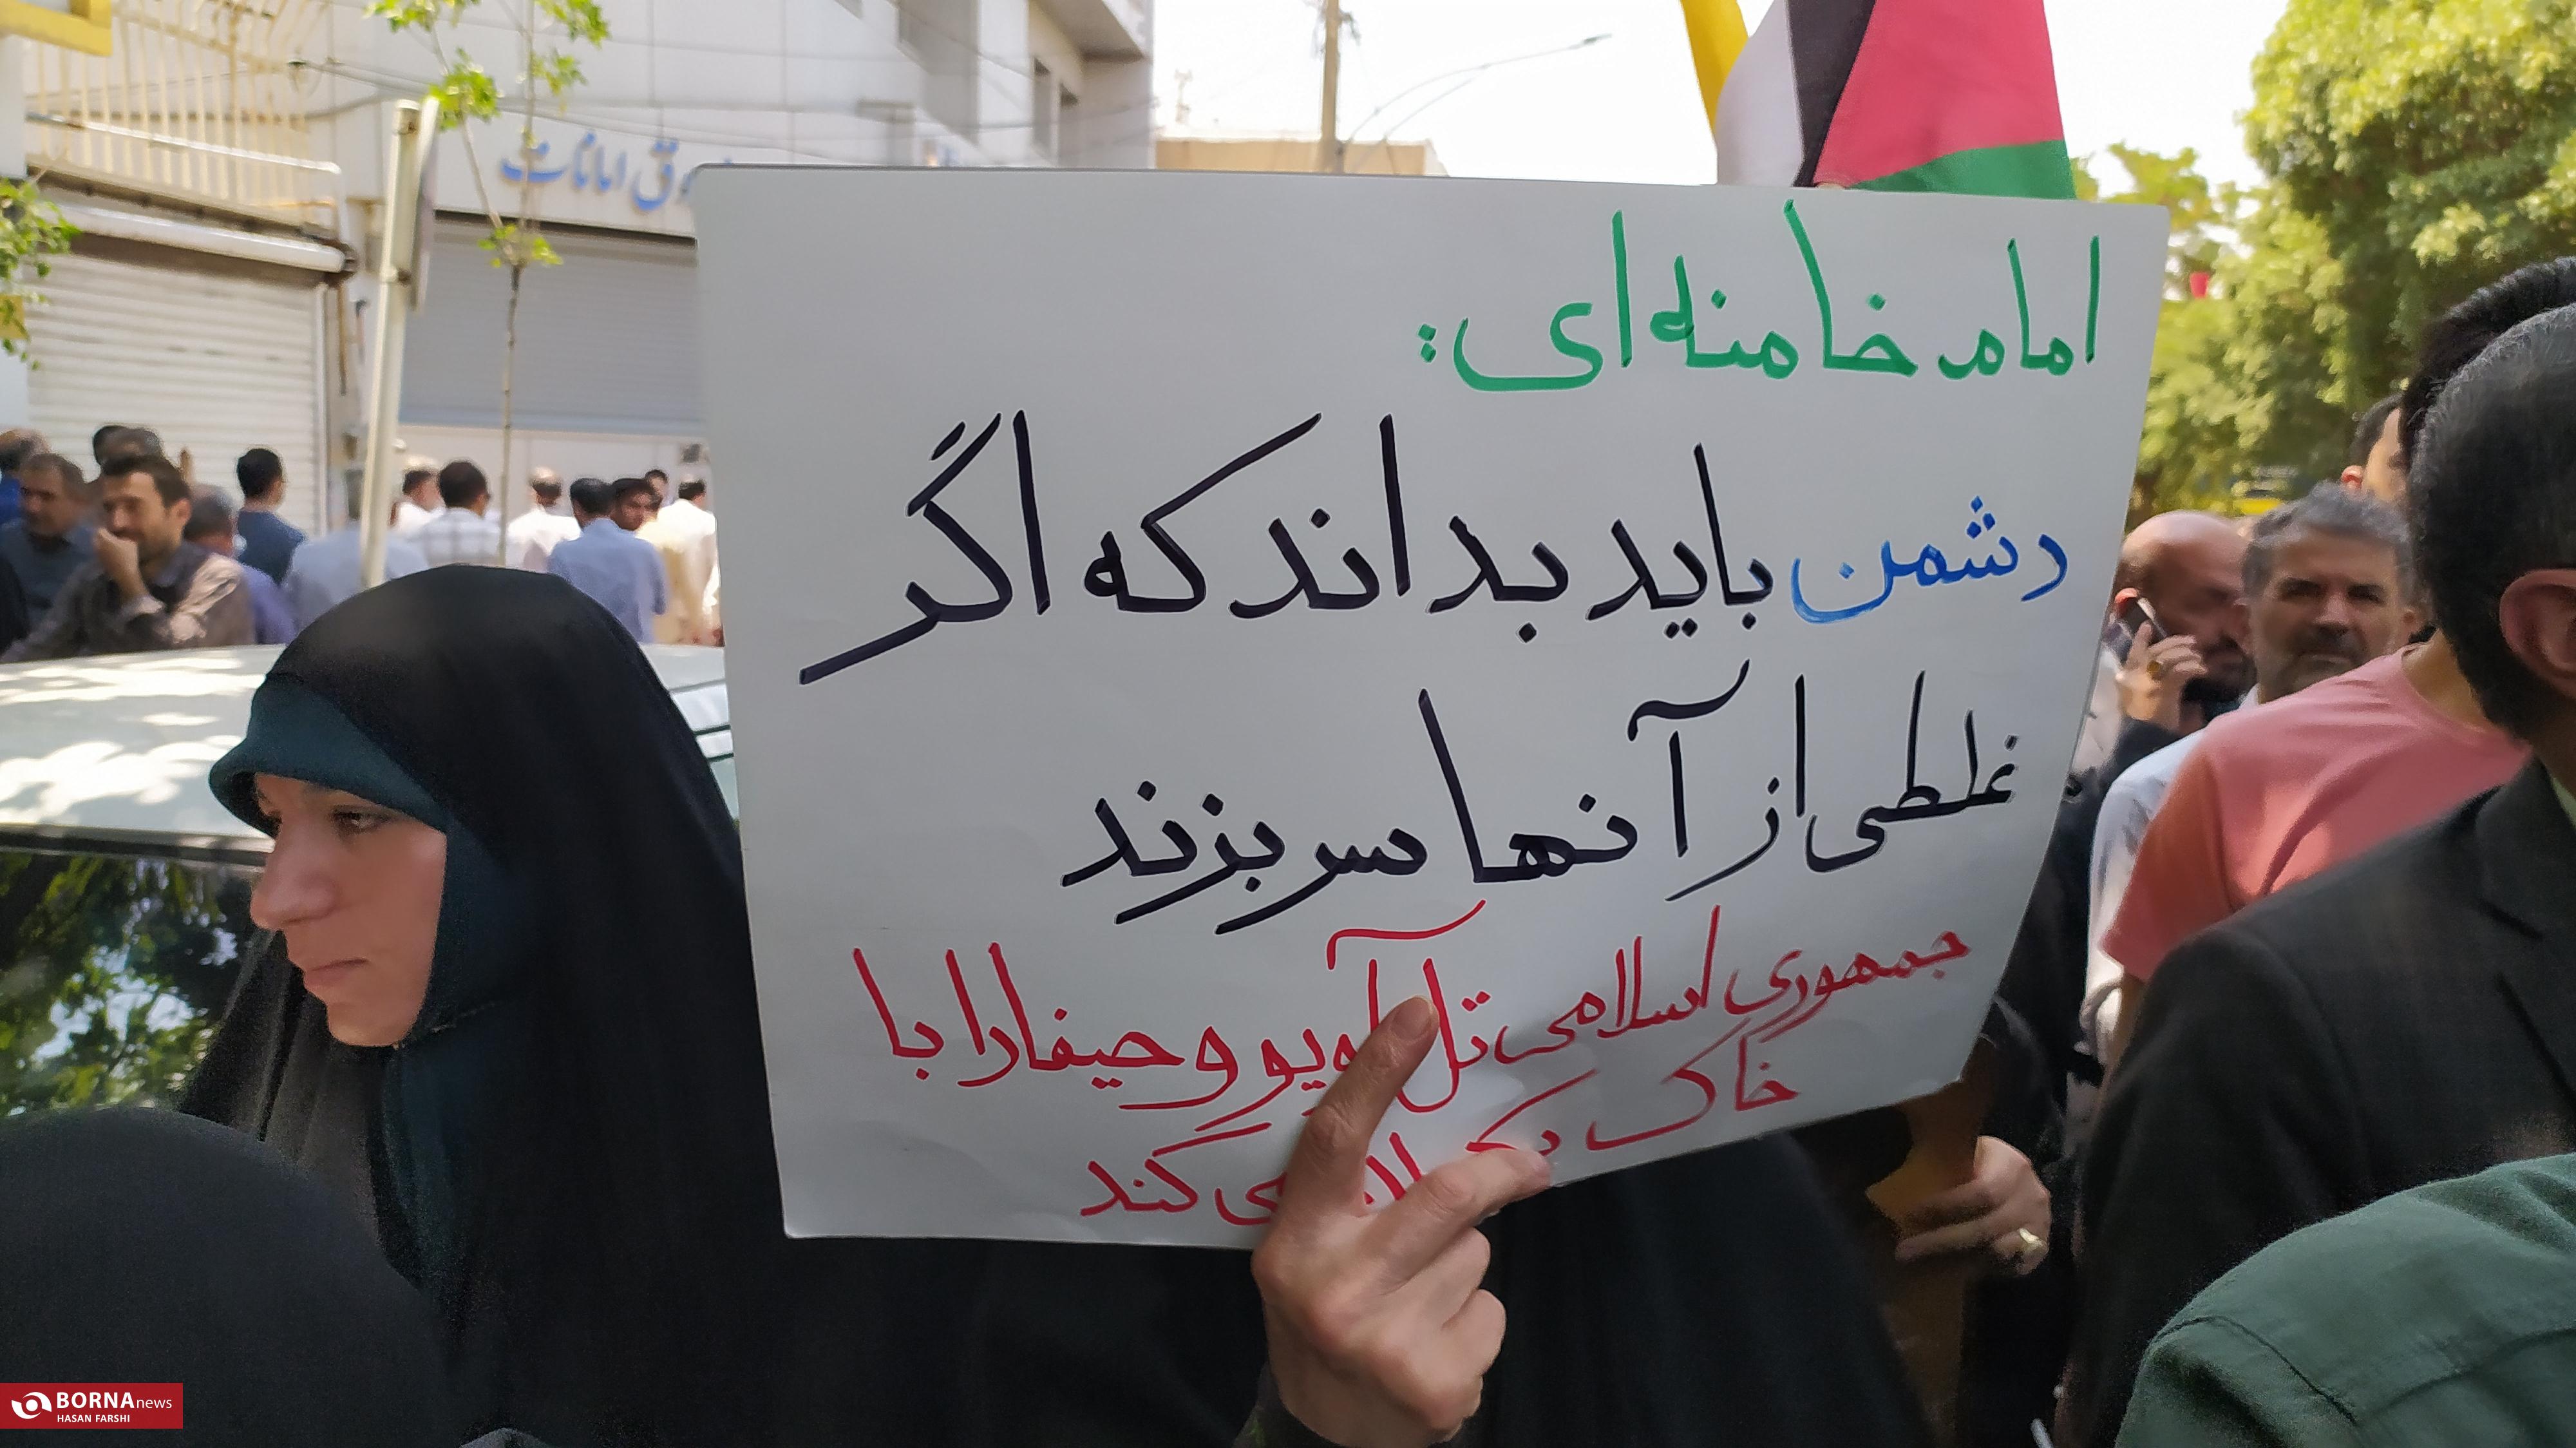 امانات
امام خامنه ای:
دشمن باید بداند که اگر
غلطی از آنها سر بزند
جمهوری اسلامی تل آویو و حیفا را با
خاک یکسان می کند
BORNA news
HASAN FARSHI